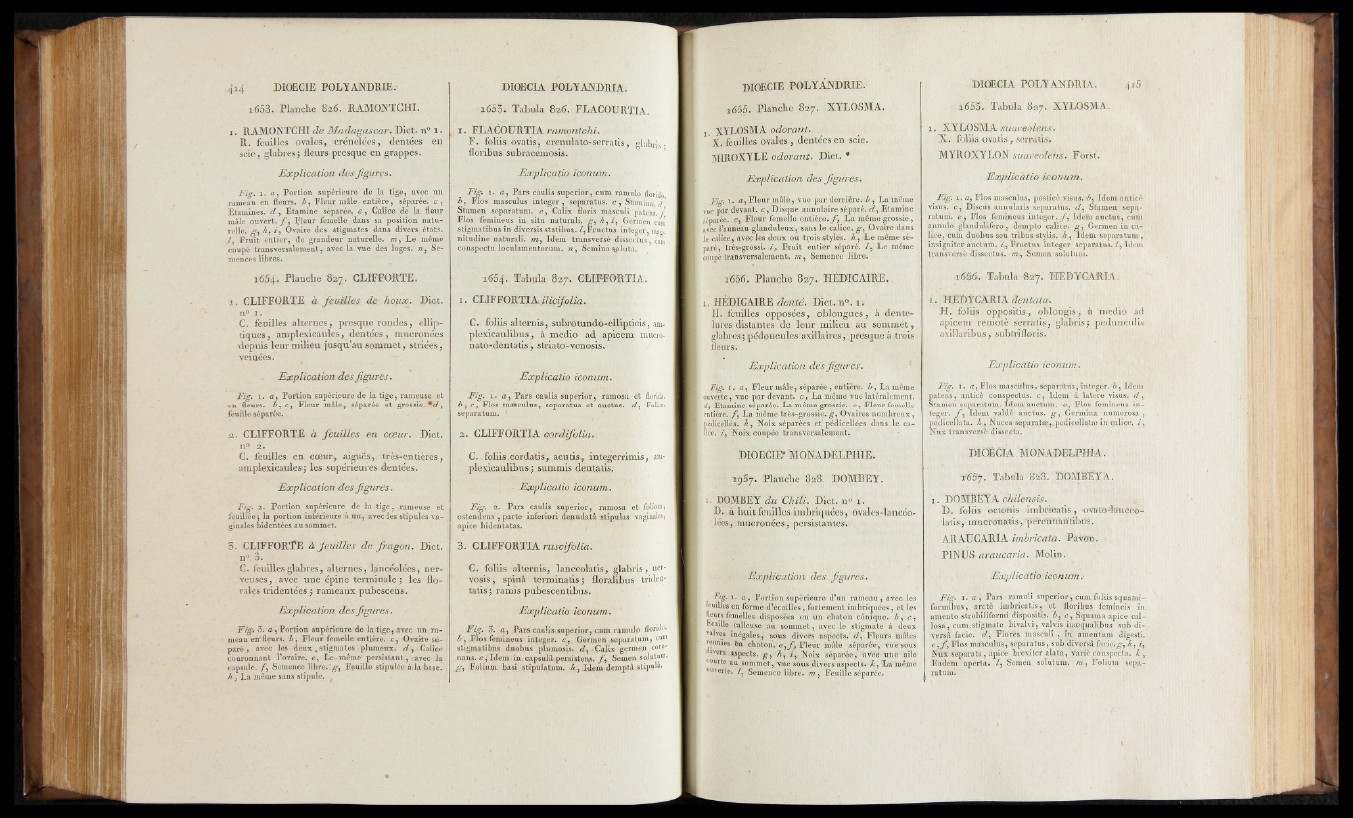 424 DIOECIE POLYANDRIE.
1653. Planche 826. RAMONTCHI.
1. RAMONTCHI de Madagascar. Dict. n° 1.
R. feuilles ovales, crénelées, dentées en
scie, glabres; fleurs presque en grappes.
Explication des figures.
Fig. 1. a, Portion supérieure de la tige, avec un
rameau en fleurs. b, Fleur mâle entière, séparée. c,
Etamines. d, Etamine séparée. e, Calice de la fleur
mâle ouvert. f, Fleur femelle dans sa position natu-
relle. g, h, i, Ovaire des stigmates dans divers états.
l, Fruit entier, de grandeur naturelle. m, Le même
coupé transversalement, avec la vue des loges. n, Se-
mences libres.
1654. Planche 827. CLIFFORTE.
1. CLIFFORTE à feuilles de houx. Dict.
n° 1.
C. feuilles alternes, presque rondes, ellip-
tiques, amplexicaules, dentées, mucronées
depuis leur milieu jusqu'au sommet, striées,
veinées.
Explication des figures.
Fig. 1. a, Portion supérieure de la tige, rameuse et
en fleurs. b, c, Fleur mâle, séparée et grossie. *d,
feuille séparée.
2. CLIFFORTE à feuilles en cœur. Dict.
n° 2.
C. feuilles en cœur, aiguës, très-entières,
amplexicaules; les supérieures dentées.
Explication des figures.
Fig. 2. Portion supérieure de la tige, rameuse et
feuillée; la portion inférieure à nu, avec les stipules va-
ginales bidentées au sommet.
3. CLIFFORTE à feuilles de fragon. Dict.
n° 3.
C. feuilles glabres, alternes, lancéolées, ner-
veuses, avec une épine terminale; les flo-
rales tridentées; rameaux pubescens.
Explication des figures.
Fig. 3. a, Portion supérieure de la tige, avec un ra-
meau en fleurs. b, Fleur femelle entière. c, Ovaire sé-
paré, avec les deux stigmates plumeux. d, Calice
couronnant l'ovaire. e, Le même persistant, avec la
capsule. f, Semence libre. g, Feuille stipulée à la base.
h, La même sans stipule.
DIOECIA POLYANDRIA.
1653. Tabula 826. FLACOURTIA.
1. FLACOURTIA ramontchi.
F. foliis ovatis, crenulato-serratis, glabris;
floribus subracemosis.
Explicatio iconum.
Fig. 1. a, Pars caulis superior, cum ramulo florido.
b, Flos masculus integer, separatus. c, Stamina. d,
Stamen separatum. e, Calix floris masculi patens. f,
Flos femineus in situ naturali. g, h, i, Germen cum
stigmatibus in diversis statibus. l, Fructus integer, mag-
nitudine naturali. m, Idem transverse dissectus, cum
conspectu loculamentorum. n, Semina soluta.
1654. Tabula 827. CLIFFORTIA.
1. CLIFFORTIA ilicifolia.
C. foliis alternis, subrotundo-ellipticis, am-
plexicaulibus, à medio ad apicem mucro-
nato-dentatis, striato-venosis.
Explicatio iconum.
Fig. 1. a, Pars caulis superior, ramosa et florida.
b, c, Flos masculus, separatus et auctus. d, Folium
separatum.
2. CLIFFORTIA cordifolia.
C. foliis cordatis, acutis, integerrimis, am-
plexicaulibus; summis dentatis.
Explicatio iconum.
Fig. 2. Pars caulis superior, ramosa et foliosa,
ostendens, parte inferiori denudatâ stipulas vaginales,
apice bidentatas.
3. CLIFFORTIA ruscifolia.
C. foliis alternis, lanceolatis, glabris, ner-
vosis, spinâ terminatis; floralibus triden-
tatis; ramis pubescentibus.
Explicatio iconum.
Fig. 3. a, Pars caulis superior, cum ramulo florido.
b, Flos femineus integer. c, Germen separatum, cum
stigmatibus duobus plumosis. d, Calix germen coro-
nans. e, Idem in capsulâ persistens. f, Semen solutum.
g, Folium basi stipulatum. h, Idem demptâ stipulâ.
DIOECIE POLYANDRIE.
1655. Planche 827. XYLOSMA.
1. XYLOSMA odorant.
X. feuilles ovales, dentées en scie.
MIROXYLE odorant. Dict. *
Explication des figures.
Fig. 1. a, Fleur mâle, vue par derrière. b, La même
vue par devant. c, Disque annulaire séparé. d, Etamine
séparée. e, Fleur femelle entière. f, La même grossie,
avec l'anneau glanduleux, sans le calice. g, Ovaire dans
le calice, avec les deux ou trois styles. h, Le même sé-
paré, très-grossi. i, Fruit entier séparé. l, Le même
coupé transversalement. m, Semence libre.
1656. Planche 827. HÉDICAIRE.
1. HÉDICAIRE denté. Dict. n°. 1.
H. feuilles opposées, oblongues, à dente-
lures distantes de leur milieu au sommet,
glabres; pédoncules axillaires, presque à trois
fleurs.
Explication des figures.
Fig. 1. a, Fleur mâle, séparée, entière. b, La même
ouverte, vue par devant. c, La même vue latéralement.
d, Etamine séparée. La même grossie. e, Fleur femelle
entière. f, La même très-grossie. g, Ovaires nombreux,
pédicellés. h, Noix séparées et pédicellées dans le ca-
lice. i, Noix coupée transversalement.
DIOECIE MONADELPHIE.
1957. Planche 828. DOMBEY.
1. DOMBEY du Chili. Dict. n° 1.
D. à huit feuilles imbriquées, ovales-lancéo-
lées, mucronées, persistantes.
Explication des figures.
Fig. 1. a, Portion supérieure d'un rameau, avec les
feuilles en forme d'écailles, fortement imbriquées, et les
fleurs femelles disposées en un chaton cônique. b, c,
Ecaille calleuse au sommet, avec le stigmate à deux
valves inégales, sous divers aspects. d, Fleurs mâles
réunies en chaton. e, f, Fleur mâle séparée, vue sous
divers aspects. g, h, i, Noix séparée, avec une aile
courte au sommet, vue sous divers aspects. k, La même
ouverte. l, Semence libre. m, Feuille séparée.
DIOECIA POLYANDRIA. 415
1655. Tabula 827. XYLOSMA.
1. XYLOSMA suaveolens.
X. foliis ovatis, serratis.
MYROXYLON suaveolens. Forst.
Explicatio iconum.
Fig. 1. a, Flos masculus, posticè visus. b, Idem anticè
visus. c, Discus annularis separatus. d, Stamen sepa-
ratum. e, Flos femineus integer. f, Idem auctus, cum
annulo glandulifero, dempto calice. g, Germen in ca-
lice, cum duobus seu tribus stylis. h, Idem separatum,
insigniter auctum. i, Fructus integer separatus. l, Idem
transversè dissectus. m, Semen solutum.
1656. Tabula 827. HEDYCARIA.
1. HEDYCARIA dentata.
H. foliis oppositis, oblongis, à medio ad
apicem remotè serratis, glabris; pedunculis
axillaribus, subtrifloris.
Explicatio iconum.
Fig. 1. a, Flos masculus, separatus, integer. b, Idem
patens, anticè conspectus. c, Idem à latere visus. d,
Stamen separatum. Idem auctum. e, Flos femineus in-
teger. f, Idem valdè auctus. g, Germina numerosa,
pedicellata. h, Nuces separatæ, pedicellatæ in calice. i,
Nux transversè dissecta.
DIOECIA MONADELPHIA.
1657. Tabula 828. DOMBEYA.
1. DOMBEYA chilensis.
D. foliis octonis imbricatis, ovato-lanceo-
latis, mucronatis, perennantibus.
ARAUCARIA imbricata. Pavon.
PINUS araucaria. Molin.
Explicatio iconum.
Fig. 1. a, Pars ramuli superior, cum foliis squami-
formibus, arctè imbricatis, et floribus femineis in
amento strobiliformi dispositis. b, c, Squama apice cal-
losa, cum stigmate bivalvi, valvis inæqualibus sub di-
versâ facie. d, Flores masculi, in amentum digesti.
e, f, Flos masculus, separatus, sub diversâ facie. g, h, i,
Nux separata, apice breviter alata, variè conspecta. k,
Eadem aperta. l, Semen solutum. m, Folium sepa-
ratum.